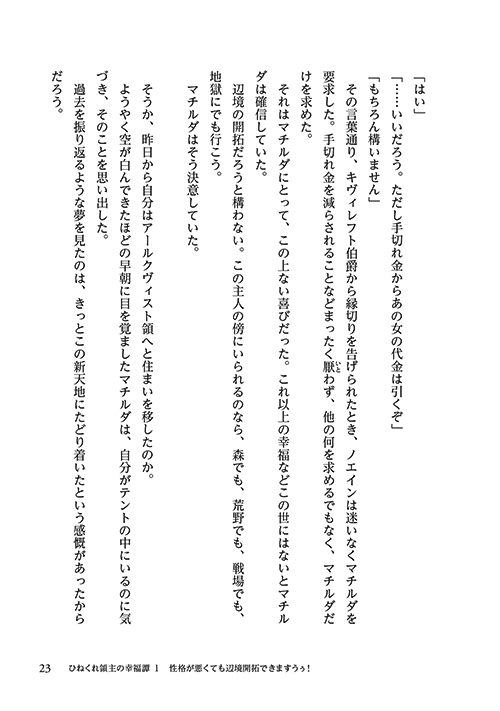 「はい」
「……いいだろう。ただし手切れ金からあの女の代金は引くぞ」
「もちろん構いません」
その言葉通り、キヴィレフト伯爵から縁切りを告げられたとき、ノエインは迷いなくマチルダを
要求した。手切れ金を減らされることなどまったく厭わず、他の何を求めるでもなく、マチルダだ
いと
けを求めた。
それはマチルダにとって、この上ない喜びだった。これ以上の幸福などこの世にはないとマチル
ダは確信していた。
辺境の開拓だろうと構わない。この主人の傍にいられるのなら、森でも、荒野でも、戦場でも、
地獄にでも行こう。
マチルダはそう決意していた。
そうか、昨日から自分はアールクヴィスト領へと住まいを移したのか。
ようやく空が白んできたほどの早朝に目を覚ましたマチルダは、自分がテントの中にいるのに気
づき、そのことを思い出した。
過去を振り返るような夢を見たのは、きっとこの新天地にたどり着いたという感慨があったから
だろう。
23 ひねくれ領主の幸福譚 1 性格が悪くても辺境開拓できますうぅ!